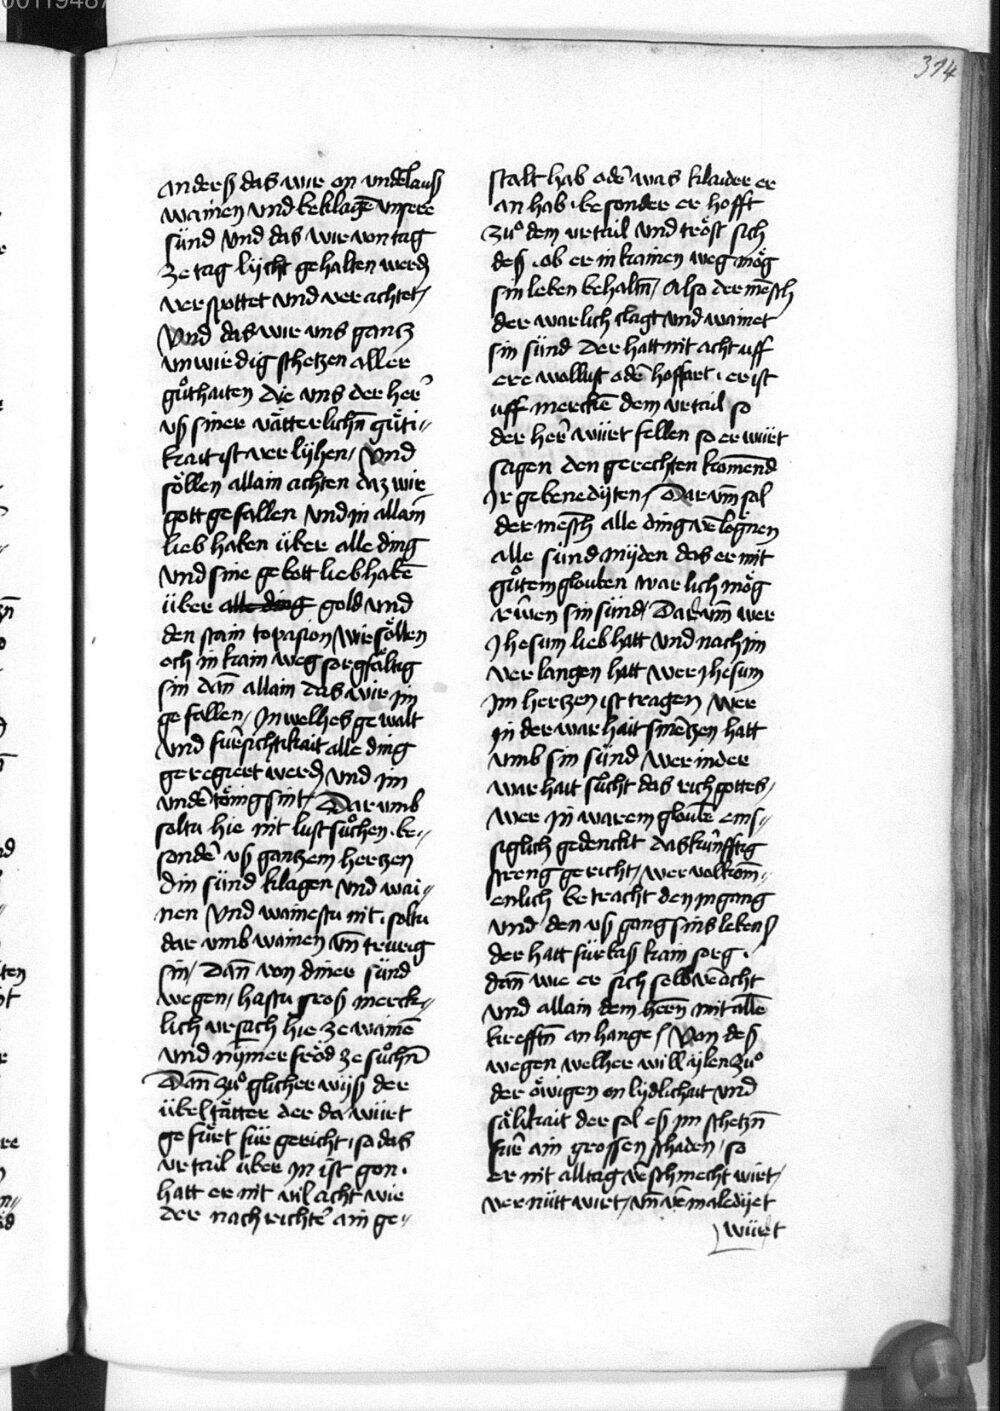 314
anderß das wir on underlauß
wainen und beklagē unsere
sünd und das wir von tag
ze tag lycht gehalten werdē
verspottet und verachtet /
Und das wir uns gantz
unwirdig schetzen aller
gůthaiten die uns der her̄
uß siner vätterlichn̄ gůti⸗
krait ist verlyhen / Und
söllen allain achten daz wir
gott gefallen und jn allain
lieb haben über alle ding
und sine gebott lieb habē
über alle ding gold und
den stain topasion / wir sölten
och in krain weg sorgfältig
sin dañ allain das wir jm
gefallen / Jn welhes gewalt
und fürsichtikait alle ding
geregiert werdē und jm
undertönig sint / Darumb
soltu hie nit lust sůchen . be⸗
sonder̄ uß gantzem hertzen
din sünd klagen und wai⸗
nen Und wainestu nit . soltu
darumb wainen uñ trurig
sin / Dañ von diner sünd
wegen / hastu groß merck⸗
lich ursach hie ze wainē
und nymer fröd ze sůchn̄
Dañ zů glicher wyß der
übeltätter der da würt
gefürt für gericht . so das
urtail über jn ist gon .
hatt er nit vil acht wie
der nachrichter̄ ain ge⸗
stalt hab oder̄ was klaider er
an hab . besonder er hofft
zů dem urtail und tröst sich
deß . ob er in krainen weg mög
sin leben behaltn̄ / Also der mēsch
der warlich clagt und wainet
sin sünd der hatt nit acht uff
ere wollust oder̄ hoffart . er ist
uff merckē dem urtail so
der her̄ würt fellen so er würt
sagen den gerechten komend
Jr gebenedyten / Darum̄ sol
der mēsch alle ding v̄lögnen
alle sünd myden das er mit
gůtem glouben warlich mög
rüwen sin sünd / Darum̄ wer
Jhesum lieb hatt und nach jm
verlangen hatt wer Jhesum
jm hertzen ist tragen wer
jn der warhait smertzen hatt
umb sin sünd wer in der
warhait sůcht das rich gottes /
wer jn warem gloubē ems⸗
siglich gedenckt das künfftig
streng gericht / wer volkom̄⸗
enlich betracht den ingang
und den uß gang sins lebens
der hatt fürbaß krain sorg .
dañ wie er sich selb v̄acht
und allain dem hern̄ mit allē
krefftn̄ an hange / Von deß
wegen welher will ylen zů
der öwigen onlydlichait und
sälikait der sol eß jm schetzn̄
für ain grossen schaden / so
er nit alltag v̄schmecht wirt /
vernütt wirt / uñ v̄maledyet
würt